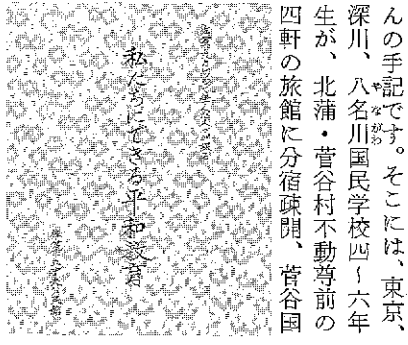 んの手記です。そこには、東京、
深川、八名川国民学校四～六年
生が、北蒲・菅谷村不動尊前の
四軒の旅館に分宿疎開、菅谷国
私たちにできる平和教育